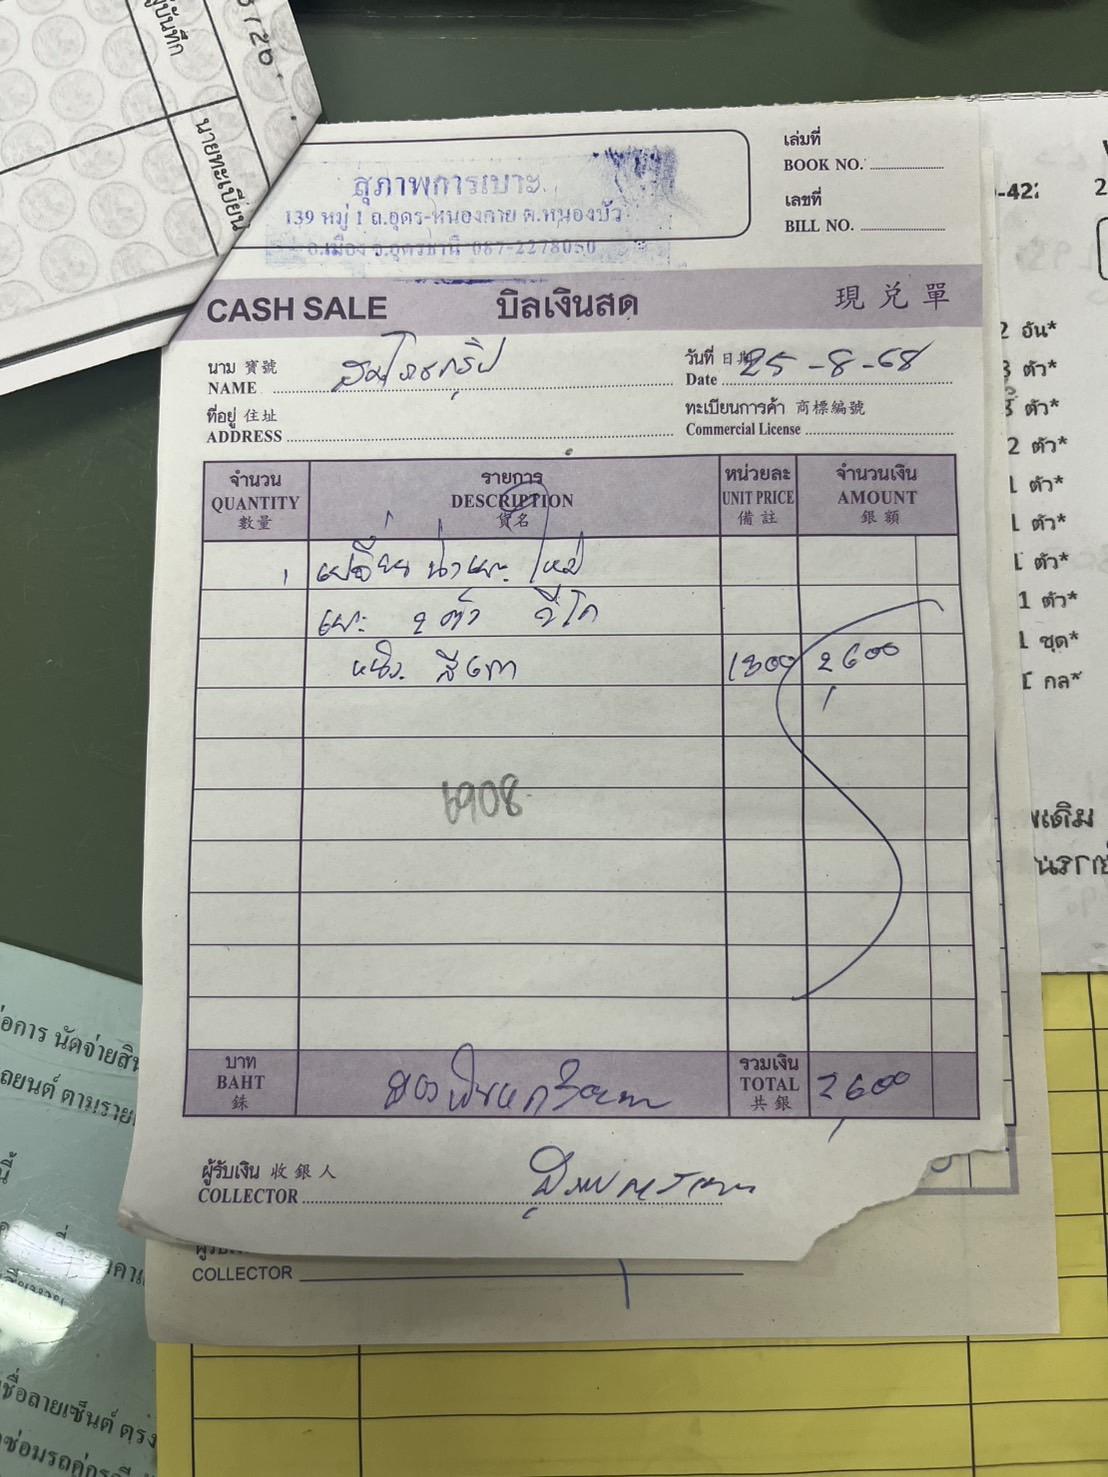 ผู้บันทึก
นายทะเบียน
สุภาพการเบาะ
139 หมู่ 1 ถ.อุดร-หนองคาย ต.หนองบัว
อ.เมือง จ.อุดรธานี 087-2278050
เล่มที่
BOOK NO.
เลขที่
BILL NO.
CASH SALE บิลเงินสด 現兑單
นาม 寶號
NAME
วันที่ 日期 25-8-68
Date
ที่อยู่ 住址
ADDRESS
ทะเบียนการค้า 商標編號
Commercial License
จำนวน รายการ หน่วยละ จำนวนเงิน
QUANTITY DESCRIPTION UNIT PRICE AMOUNT
數量 貨名 備註 銀額
1 เปลี่ยน น่าเบาะ ใหม่
เบาะ 2 ตัว วีโก
หนัง สีเทา 1300 2600
6908
บาท รวมเงิน
BAHT สองพันหกร้อยบาท TOTAL 2600
銖 共銀
ผู้รับเงิน 收銀人
COLLECTOR
COLLECTOR
-42
2 อัน*
3 ตัว*
3 ตัว*
2 ตัว*
1 ตัว*
1 ตัว*
1 ตัว*
1 ตัว*
1 ชุด*
1 กล*
นัดจ่ายสิน
ถยนต์ ตามราย
ชื่อลายเซ็นต์ ตรง